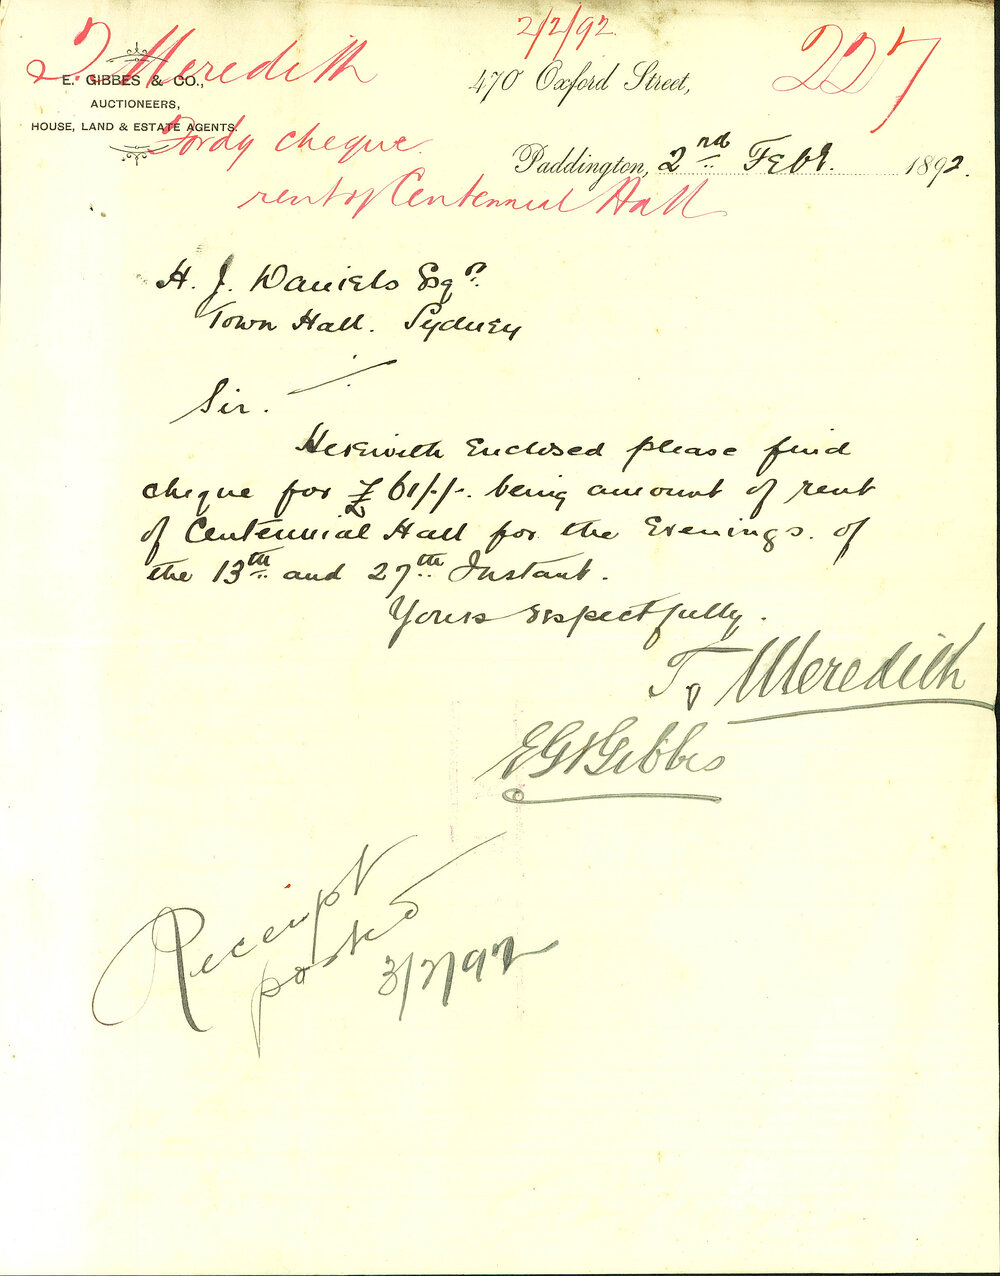 2/2/92
227
T. Meredith
E. GIBBES & CO.,
AUCTIONEERS,
HOUSE, LAND & ESTATE AGENTS.
470 Oxford Street,
Paddington, 2nd Feby. 1892.
cheque
rent of Centennial Hall
H. J. Daniels Esqr.
Town Hall. Sydney
Sir.
Herewith Enclosed please find
cheque for £61/-/-. being amount of rent
of Centennial Hall for the Evenings. of
the 13th and 27th Instant.
Yours respectfully.
T. Meredith
Gibbes
Receipt
posted
3/2/92